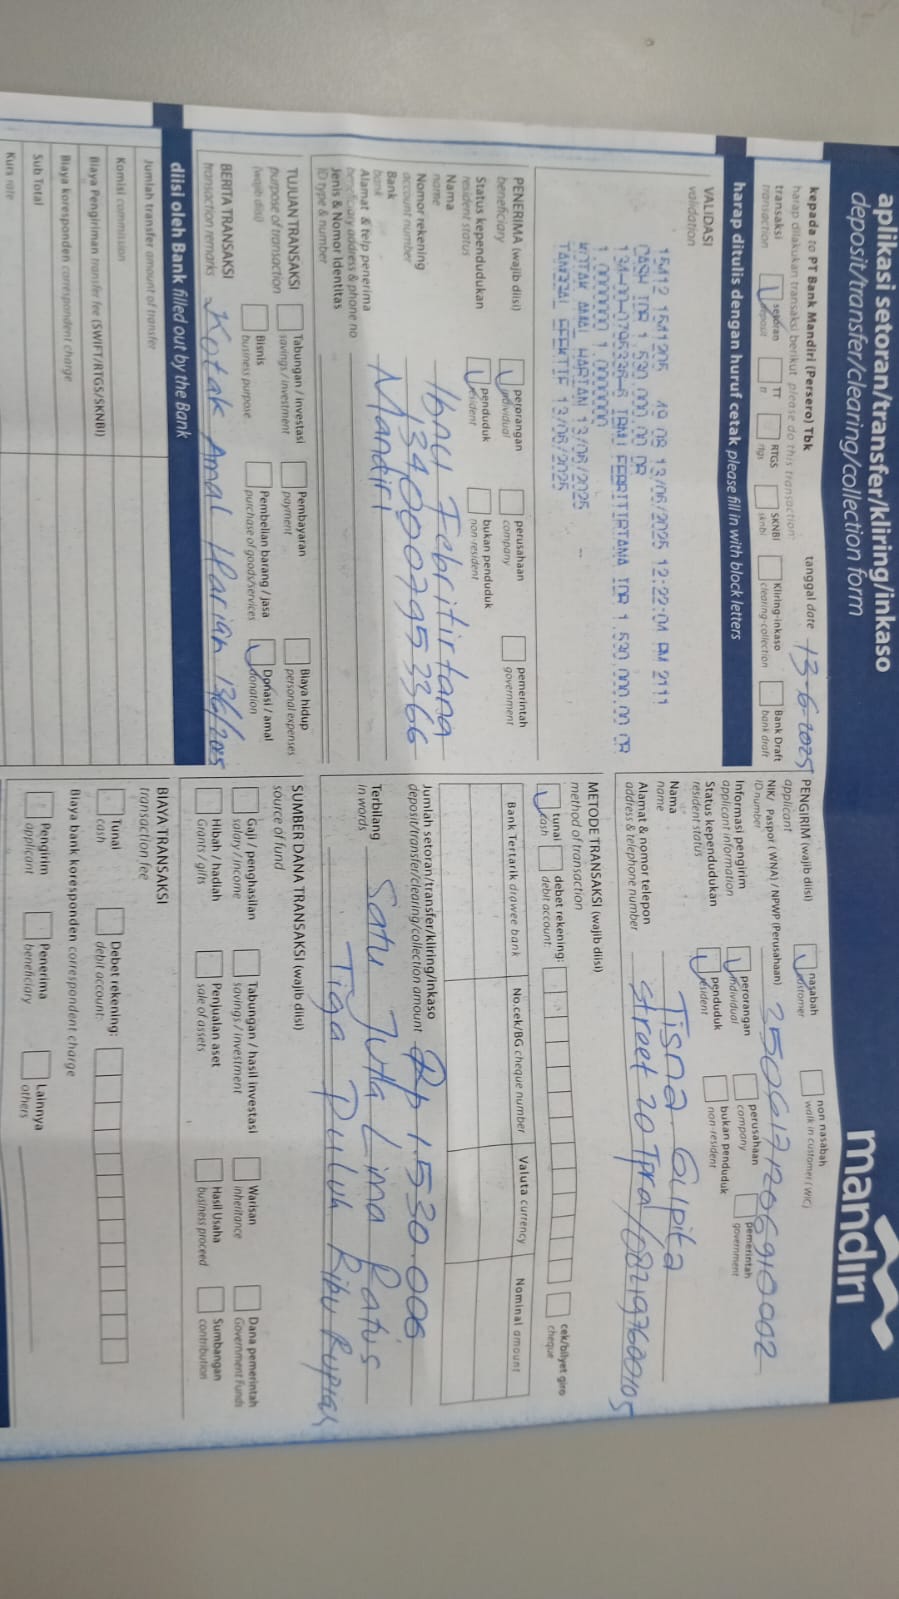 aplikasi setoran/transfer/kliring/inkaso
deposit/transfer/clearing/collection form
mandiri
kepada to PT Bank Mandiri (Persero) Tbk
tanggal date 13-6-2025
harap dilakukan transaksi berikut please do this transaction
transaksi
transaction
setoran
TT
tt
RTGS
rtgs
SKNBI
sknbi
Kliring-inkaso
clearing-collection
Bank Draft
bank draft
harap ditulis dengan huruf cetak please fill in with block letters
VALIDASI
validation
15412 1541205 49 08 13/06/2025 12:22:04 PM 2111
CASH IDR 1.530.000,00 CR
IDR 1.530.000,00 CR
1.000000 1.000000
KOTAK AMAL HARIAN 13/06/2025
TANGGAL EFEKTIF 13/06/2025
PENERIMA (wajib diisi)
beneficiary
perorangan
individual
perusahaan
company
pemerintah
government
Status kependudukan
resident status
penduduk
resident
bukan penduduk
non-resident
Nama
name
Ibnu Febritirtana
Nomor rekening
account number
Bank
bank
Mandiri
Alamat & telp penerima
beneficiary address & phone no
Jenis & Nomor Identitas
ID type & number
TUJUAN TRANSAKSI
purpose of transaction
(wajib diisi)
Tabungan / Investasi
savings / investment
Pembayaran
payment
Biaya hidup
personal expenses
Bisnis
business purpose
Pembelian barang / jasa
purchase of goods/services
Donasi / amal
donation
BERITA TRANSAKSI
transaction remarks
Kotak Amal Harian 13/6/2025
diisi oleh Bank filled out by the Bank
Jumlah transfer amount of transfer
Komisi commission
Biaya Pengiriman transfer fee (SWIFT/RTGS/SKNBI)
Biaya koresponden correspondent charge
Sub Total
Kurs rate
PENGIRIM (wajib diisi)
applicant
nasabah
customer
non nasabah
walk in customer (WIC)
NIK/ Paspor (WNA) / NPWP (Perusahaan)
ID number
3506171206910002
Informasi pengirim
applicant information
perorangan
individual
perusahaan
company
pemerintah
government
Status kependudukan
resident status
penduduk
resident
bukan penduduk
non-resident
Nama
name
Tisna Gupita
Alamat & nomor telepon
address & telephone number
METODE TRANSAKSI (wajib diisi)
method of transaction
tunai
cash
debet rekening:
debit account:
cek/bilyet giro
cheque
Bank Tertarik drawee bank
No.cek/BG cheque number
Valuta currency
Nominal amount
Jumlah setoran/transfer/kliring/inkaso
deposit/transfer/clearing/collection amount Rp 1.530.000
Terbilang
in words
Satu Juta Lima Ratus
Tiga Puluh Ribu Rupiah
SUMBER DANA TRANSAKSI (wajib diisi)
source of fund
Gaji / penghasilan
salary / income
Tabungan / hasil investasi
savings / investment
Warisan
inheritance
Dana pemerintah
Government Funds
Hibah / hadiah
Grants / gifts
Penjualan aset
sale of assets
Hasil Usaha
business proceed
Sumbangan
contribution
BIAYA TRANSAKSI
transaction fee
Tunai
cash
Debet rekening:
debit account:
Biaya bank koresponden correspondent charge
Pengirim
applicant
Penerima
beneficiary
Lainnya
others